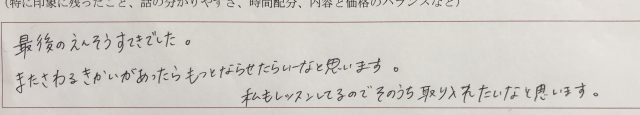 (特に印象に残ったこと、話の分かりやすさ、時間配分、内容と価格のバランスなど)
最後のえんそうすてきでした。
またさわるきかいがあったらもっとならせたらいーなと思います。
私もレッスンしてるのでそのうち取り入れたいなと思います。